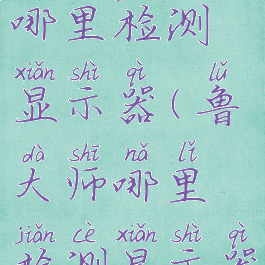 哪里检测
xiǎn shì qì lǔ
显示器(鲁
dà shī nǎ lǐ
大师哪里
jiǎn cè xiǎn shì qì
检测显示器